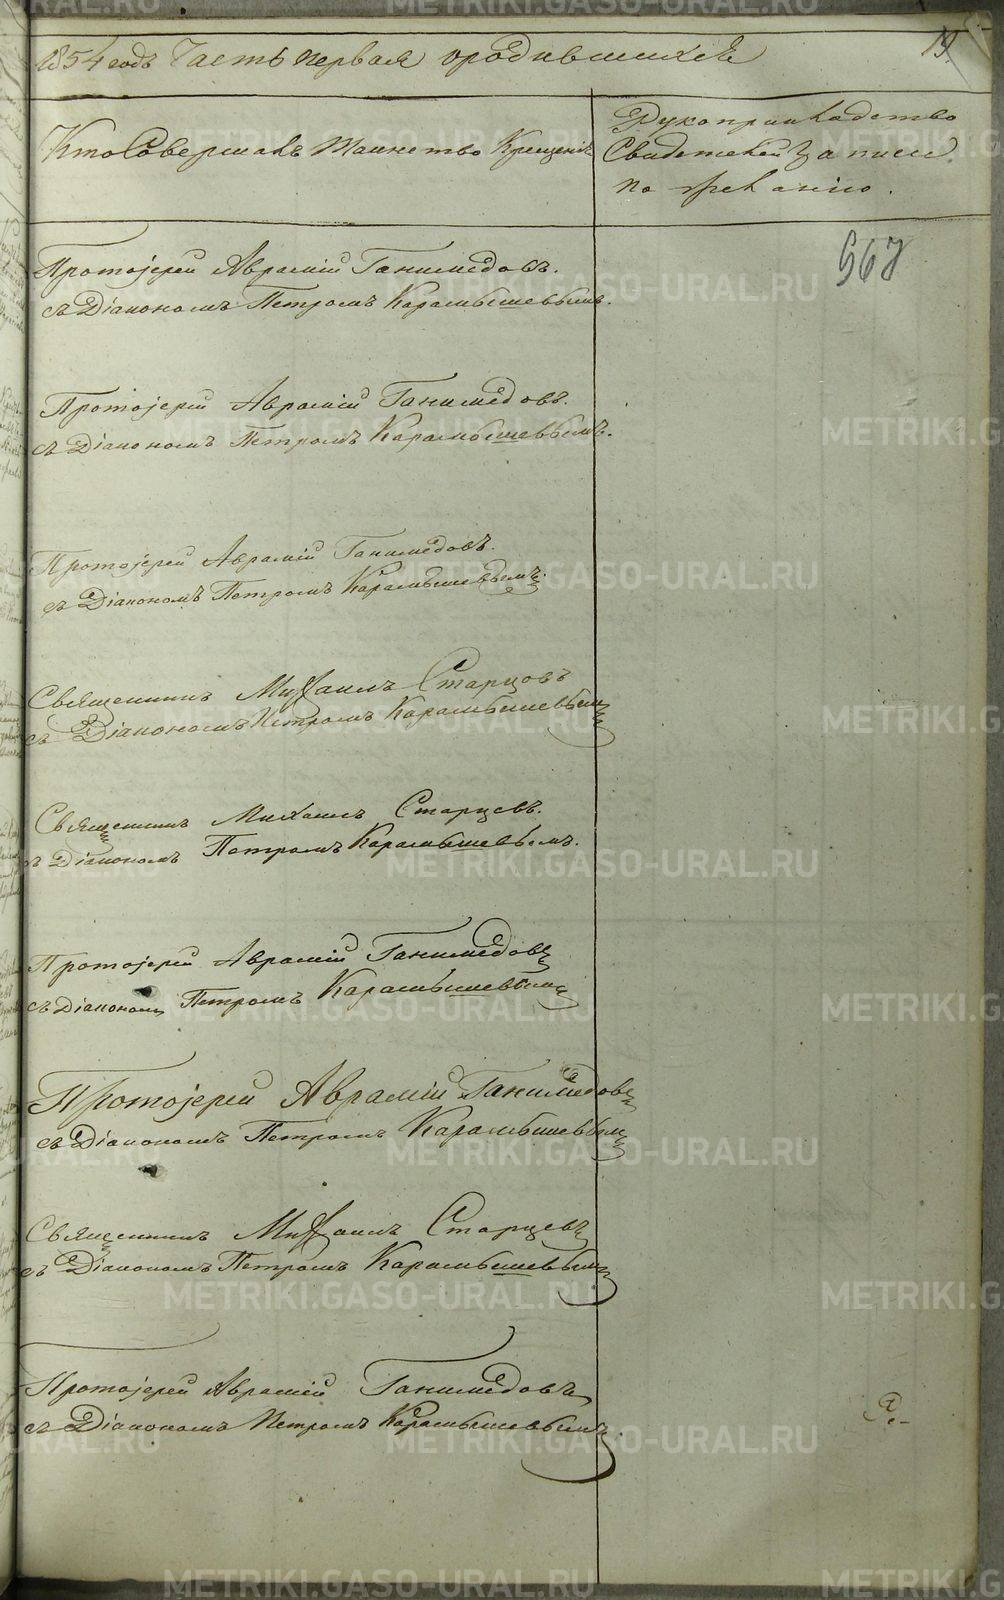 1854 годъ Часть первая о родившихся
19.
Кто Совершалъ Таинство Крещенія
Рукоприкладство
Свидетелей Записи
по желанію.
567
Протоіерей Аврамій Ганимедовъ.
съ Діакономъ Петромъ Карамышевымъ.
Протоіерей Аврамій Ганимедовъ.
съ Діакономъ Петромъ Карамышевымъ.
Протоіерей Аврамій Ганимедовъ.
съ Діакономъ Петромъ Карамышевымъ.
Священникъ Михаилъ Старцовъ
съ Діакономъ Петромъ Карамышевымъ
Священникъ Михаилъ Старцевъ.
съ Діакономъ Петромъ Карамышевымъ.
Протоіерей Аврамій Ганимедовъ
съ Діакономъ Петромъ Карамышевымъ
Протоіерей Аврамій Ганимедовъ
съ Діакономъ Петромъ Карамышевымъ
Священникъ Михаилъ Старцевъ
съ Діакономъ Петромъ Карамышевымъ
Протоіерей Аврамій Ганимедовъ
съ Діакономъ Петромъ Карамышевымъ.
METRIKI.GASO-URAL.RU